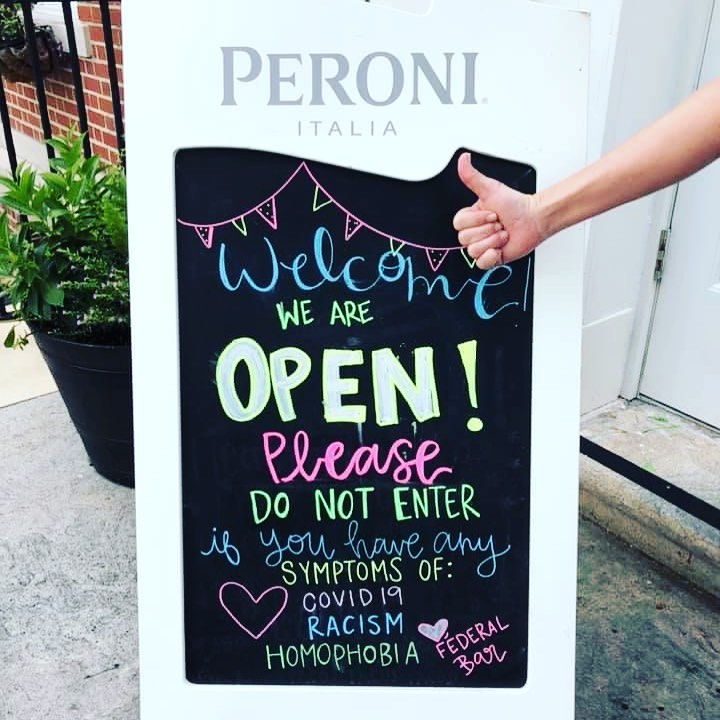 PERONI
ITALIA
Welcome!
WE ARE
OPEN!
Please
DO NOT ENTER
if you have any
SYMPTOMS OF:
COVID 19
RACISM
HOMOPHOBIA
FEDERAL
Bar